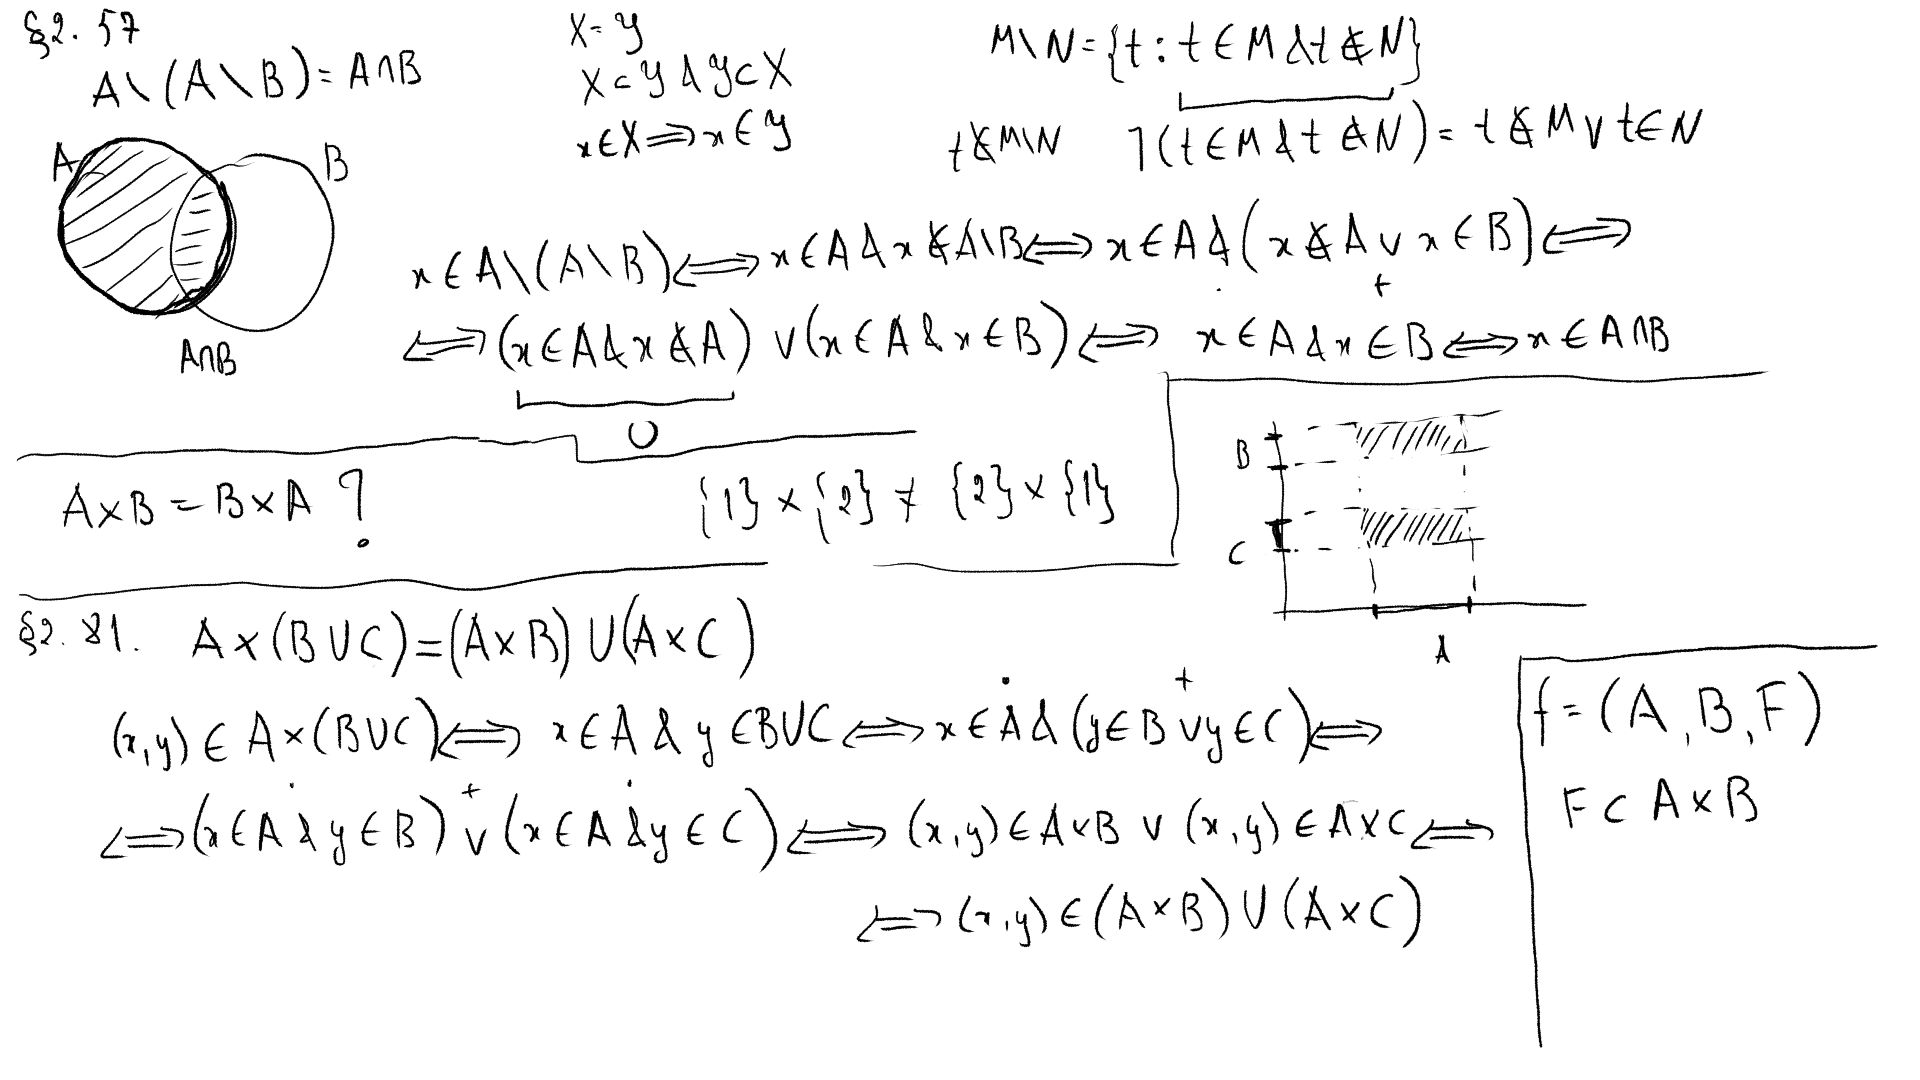 §2. 57
A\(A\B)=A∩B
A
B
A∩B
X=Y
X⊂Y & Y⊂X
x∈X⟹x∈Y
M\N={t: t∈M & t∉N}
t∉M\N ⌉(t∈M & t∉N)= t∉M∨t∈N
x∈A\(A\B)⟺x∈A & x∉A\B⟺x∈A & (x∉A ∨ x∈B)⟺
· +
⟺(x∈A & x∉A) ∨(x∈A & x∈B)⟺ x∈A & x∈B⟺x∈A∩B
0
A×B=B×A ?
{1}×{2}≠{2}×{1}
B
C
A
§2. 81. A×(B∪C)=(A×B)∪(A×C)
· +
(x,y)∈A×(B∪C)⟺ x∈A & y∈B∪C⟺x∈A & (y∈B ∨ y∈C)⟺
· + ·
⟺(x∈A & y∈B) ∨ (x∈A & y∈C)⟺ (x,y)∈A×B ∨ (x,y)∈A×C⟺
⟺(x,y)∈(A×B)∪(A×C)
f=(A,B,F)
F⊂A×B